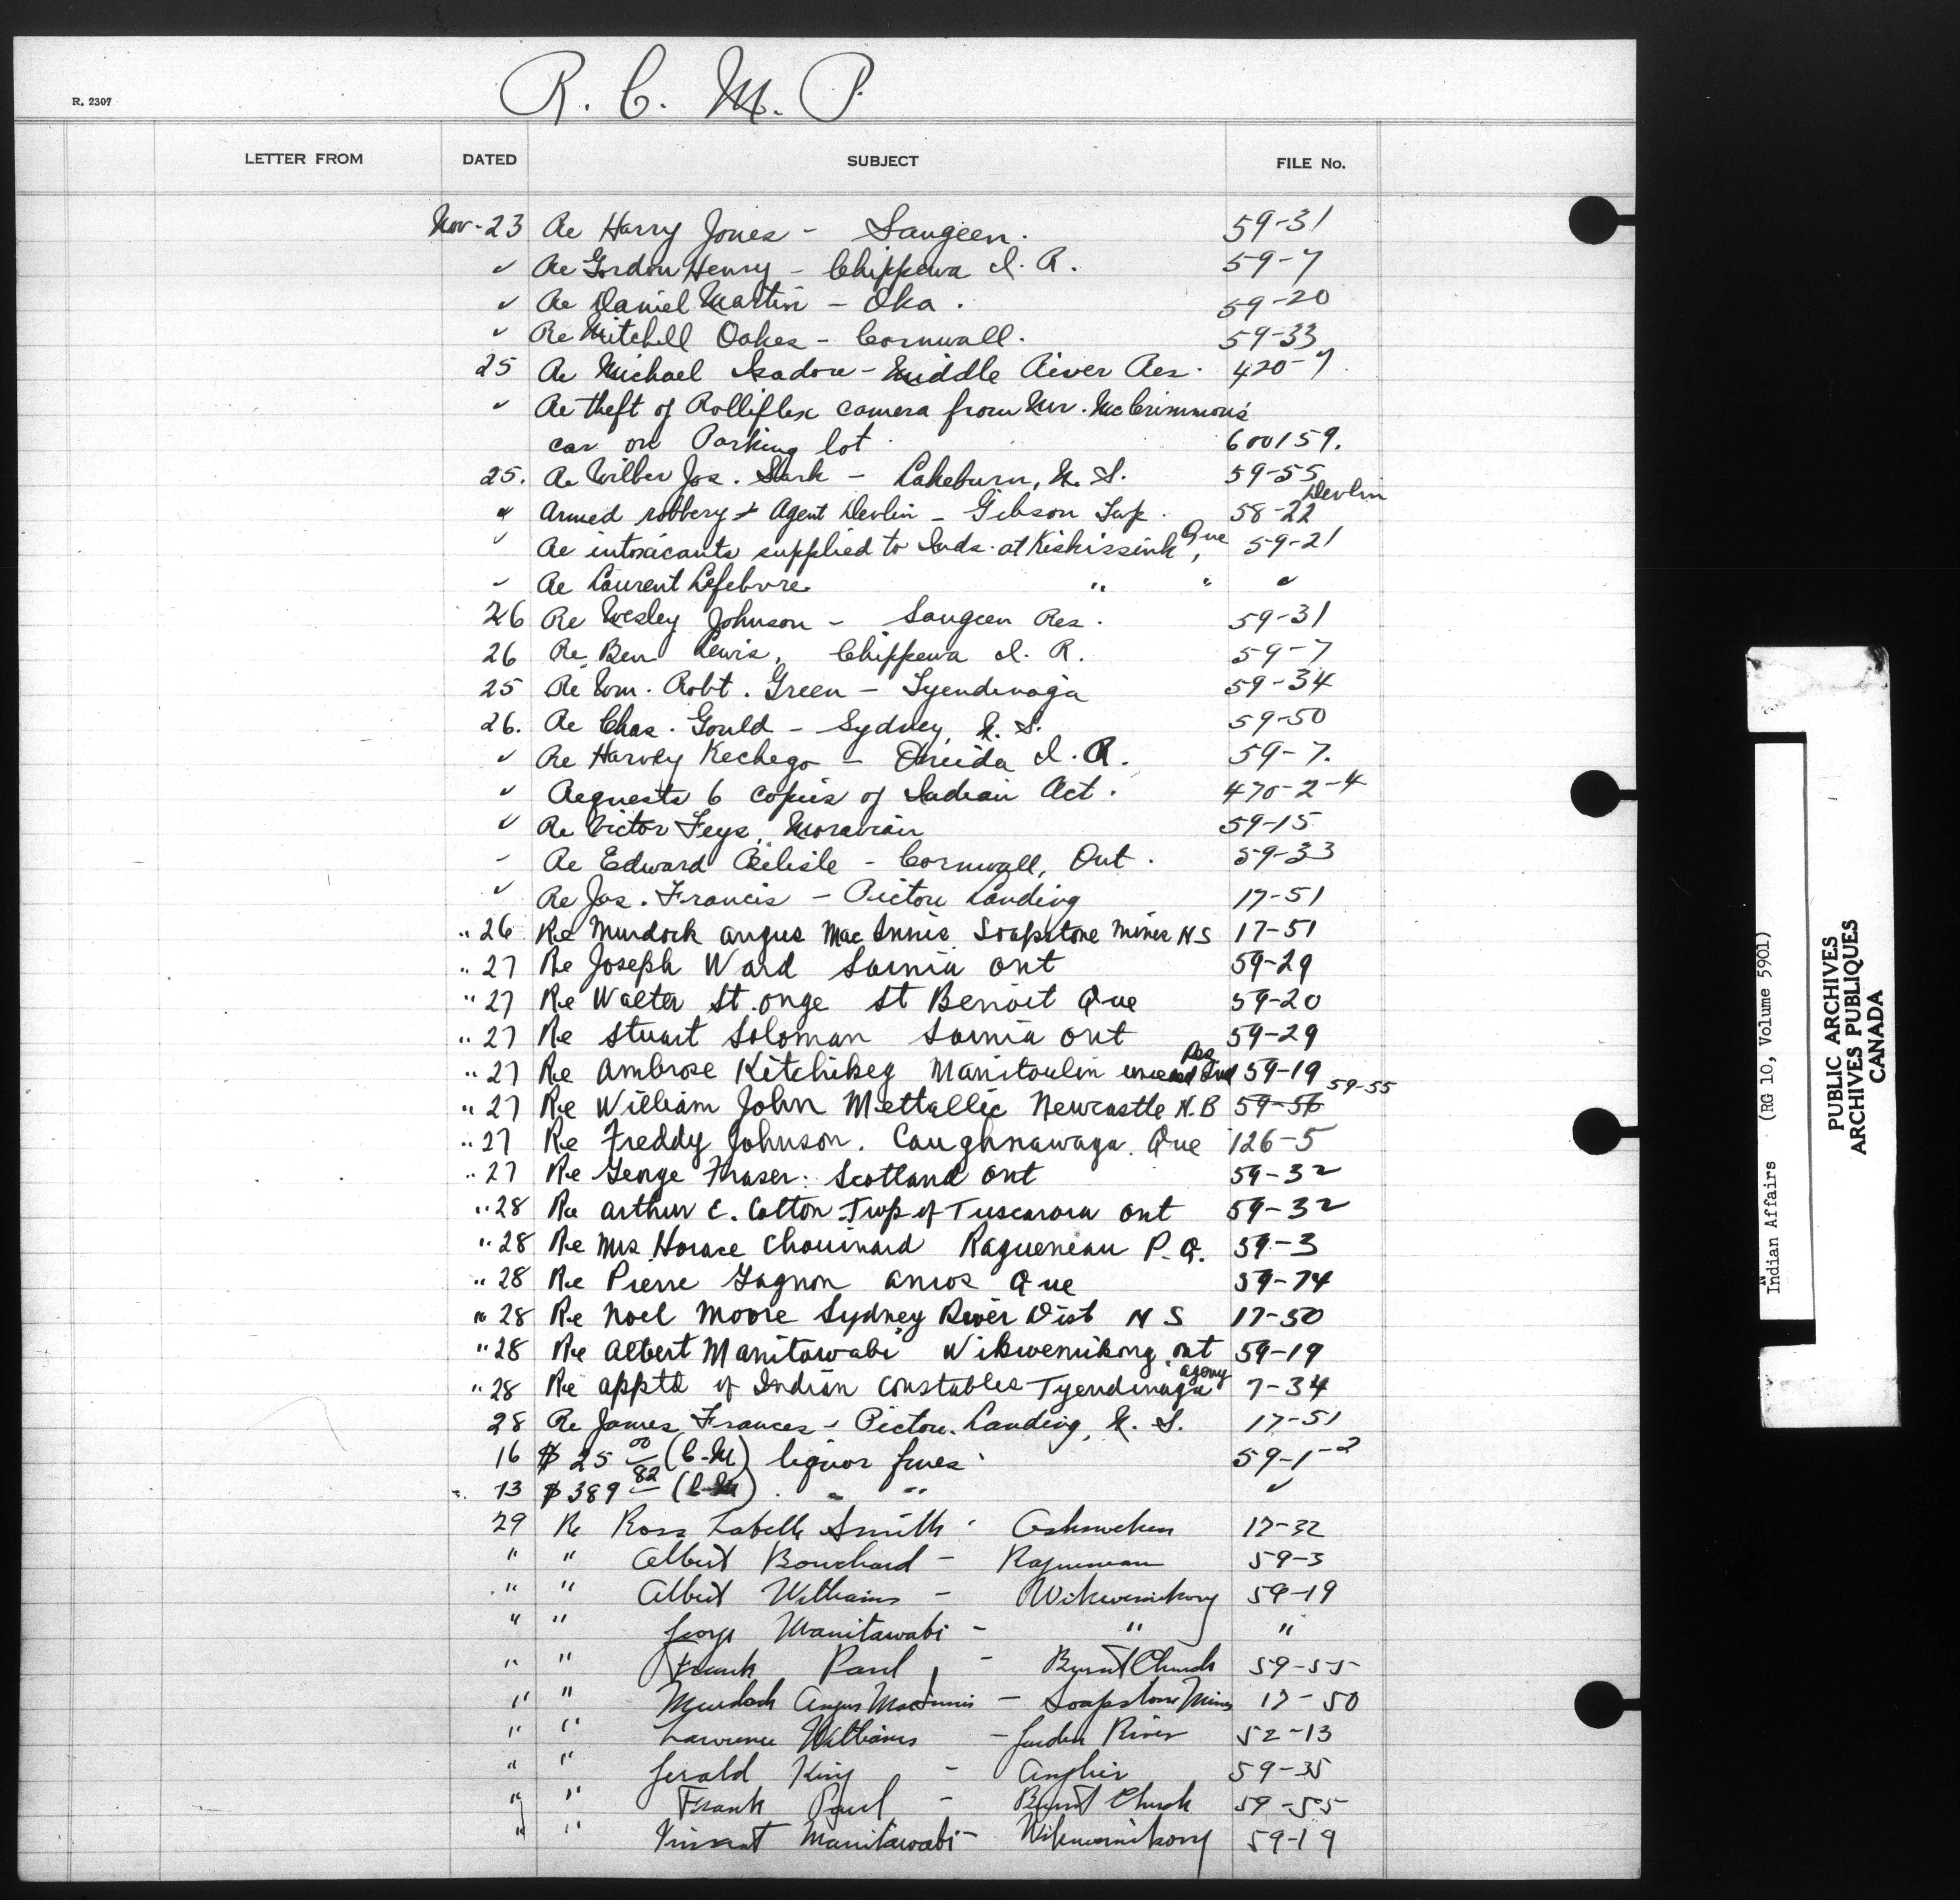 R. C. M. P.
R. 2307
LETTER FROM DATED SUBJECT FILE No.
Nov-23 Re Harry Jones - Saugeen. 59-31
✓ Re Gordon Henry - Chippewa I. R. 59-7
✓ Re Daniel Martin - Oka. 59-20
✓ Re Mitchell Oakes - Cornwall. 59-33
25 Re Michael Isadore - Middle River Res. 420-7.
✓ Re theft of Rolliflex camera from Mr. McCrimmon's
car on Parking lot 600159.
25. Re Wilber Jos. Sark - Lakeburn, N. S. 59-55
Devlin
" Armed robbery + Agent Devlin - Gibson Twp. 58-22
✓ Re intoxicants supplied to Inds. at Kiskissink, Que 59-21
✓ Re Laurent Lefebvre " " ✓
26 Re Wesley Johnson - Saugeen Res. 59-31
26 Re Ben Lewis, Chippewa I. R. 59-7
25 Re Wm. Robt. Green - Tyendinaga 59-34
26. Re Chas. Gould - Sydney, N. S. 59-50
✓ Re Harvey Kechego - Oneida I. R. 59-7.
✓ Requests 6 copies of Indian Act. 470-2-4
✓ Re Victor Feys, Moravian 59-15
- Re Edward - Cornwall, Ont. 59-33
✓ Re Jas. Francis - Pictou Landing 17-51
" 26 Re Murdock Angus MacInnis. Soapstone Mines NS 17-51
" 27 Re Joseph Ward Sarnia Ont 59-29
" 27 Re Walter St. Onge St Benoit Que 59-20
" 27 Re Stuart Soloman Sarnia Ont 59-29
" 27 Re Ambrose Kitchikeg Manitoulin unceded Ind Res 59-19
" 27 Re William John Mettallic Newcastle N.B 59-56 59-55
" 27 Re Freddy Johnson. Caughnawaga. Que 126-5
" 27 Re George Fraser: Scotland Ont 59-32
" 28 Re Arthur C. Cotton. Twp of Tuscarora Ont 59-32
" 28 Re Mrs Horace Chouinard Ragueneau P. Q. 59-3
" 28 Re Pierre Gagnon Amos Que 59-74
" 28 Re Noel Moore Sydney River Dist N S 17-50
" 28 Re Albert Manitowabi Wikwemikong, Ont 59-19
" 28 Re apptd of Indian Constables Tyendinaga agency 7-34
28 Re James Frances - Pictou Landing, N. S. 17-51
16 $ 25 00 (C-M) liquor fines 59-1-2
" 13 $ 389 82 (C-M). " " ✓
29 Re Ross Labelle Smith - Oshweken 17-32
" " Albert Bouchard - Ragueneau 59-3
" " Albert Williams - Wikwemikong 59-19
" " George Manitawabi - " "
" " Frank Paul, - Burnt Church 59-55
" " Murdock Angus MacInnis - Soapstone Mines 17-50
" " Lawrence Williams - Garden River 52-13
" " Gerald King - Anglier 59-35
" " Frank Paul - Burnt Church 59-55
" " Vincent Manitawabi - Wikwemikong 59-19
Indian Affairs (RG 10, Volume 5901)
PUBLIC ARCHIVES
ARCHIVES PUBLIQUES
CANADA